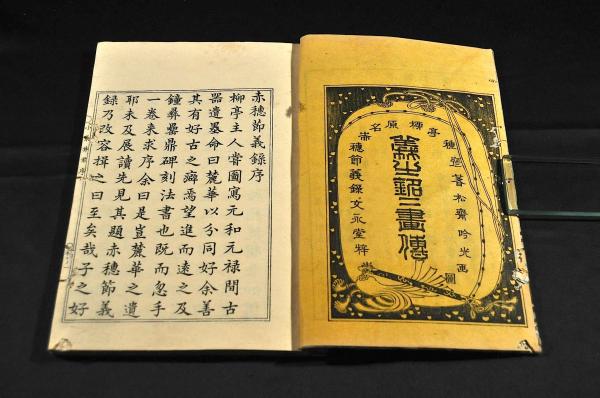 柳亭種彦著松齋吟光画圖
義士銘々畫傳
原名赤穂節義録文永堂梓
赤穂節義錄序
柳亭主人嘗圖寫元和元禄間古
器遺墨命曰麓華以分同好余善
其有好古之癖焉望進而遠之及
鐘彝罍鼎碑刻法書也既而忽手
一卷来求序余曰是豈麓華之遺
耶未及展讀先見其題赤穂節義
録乃改容揖之曰至矣哉子之好